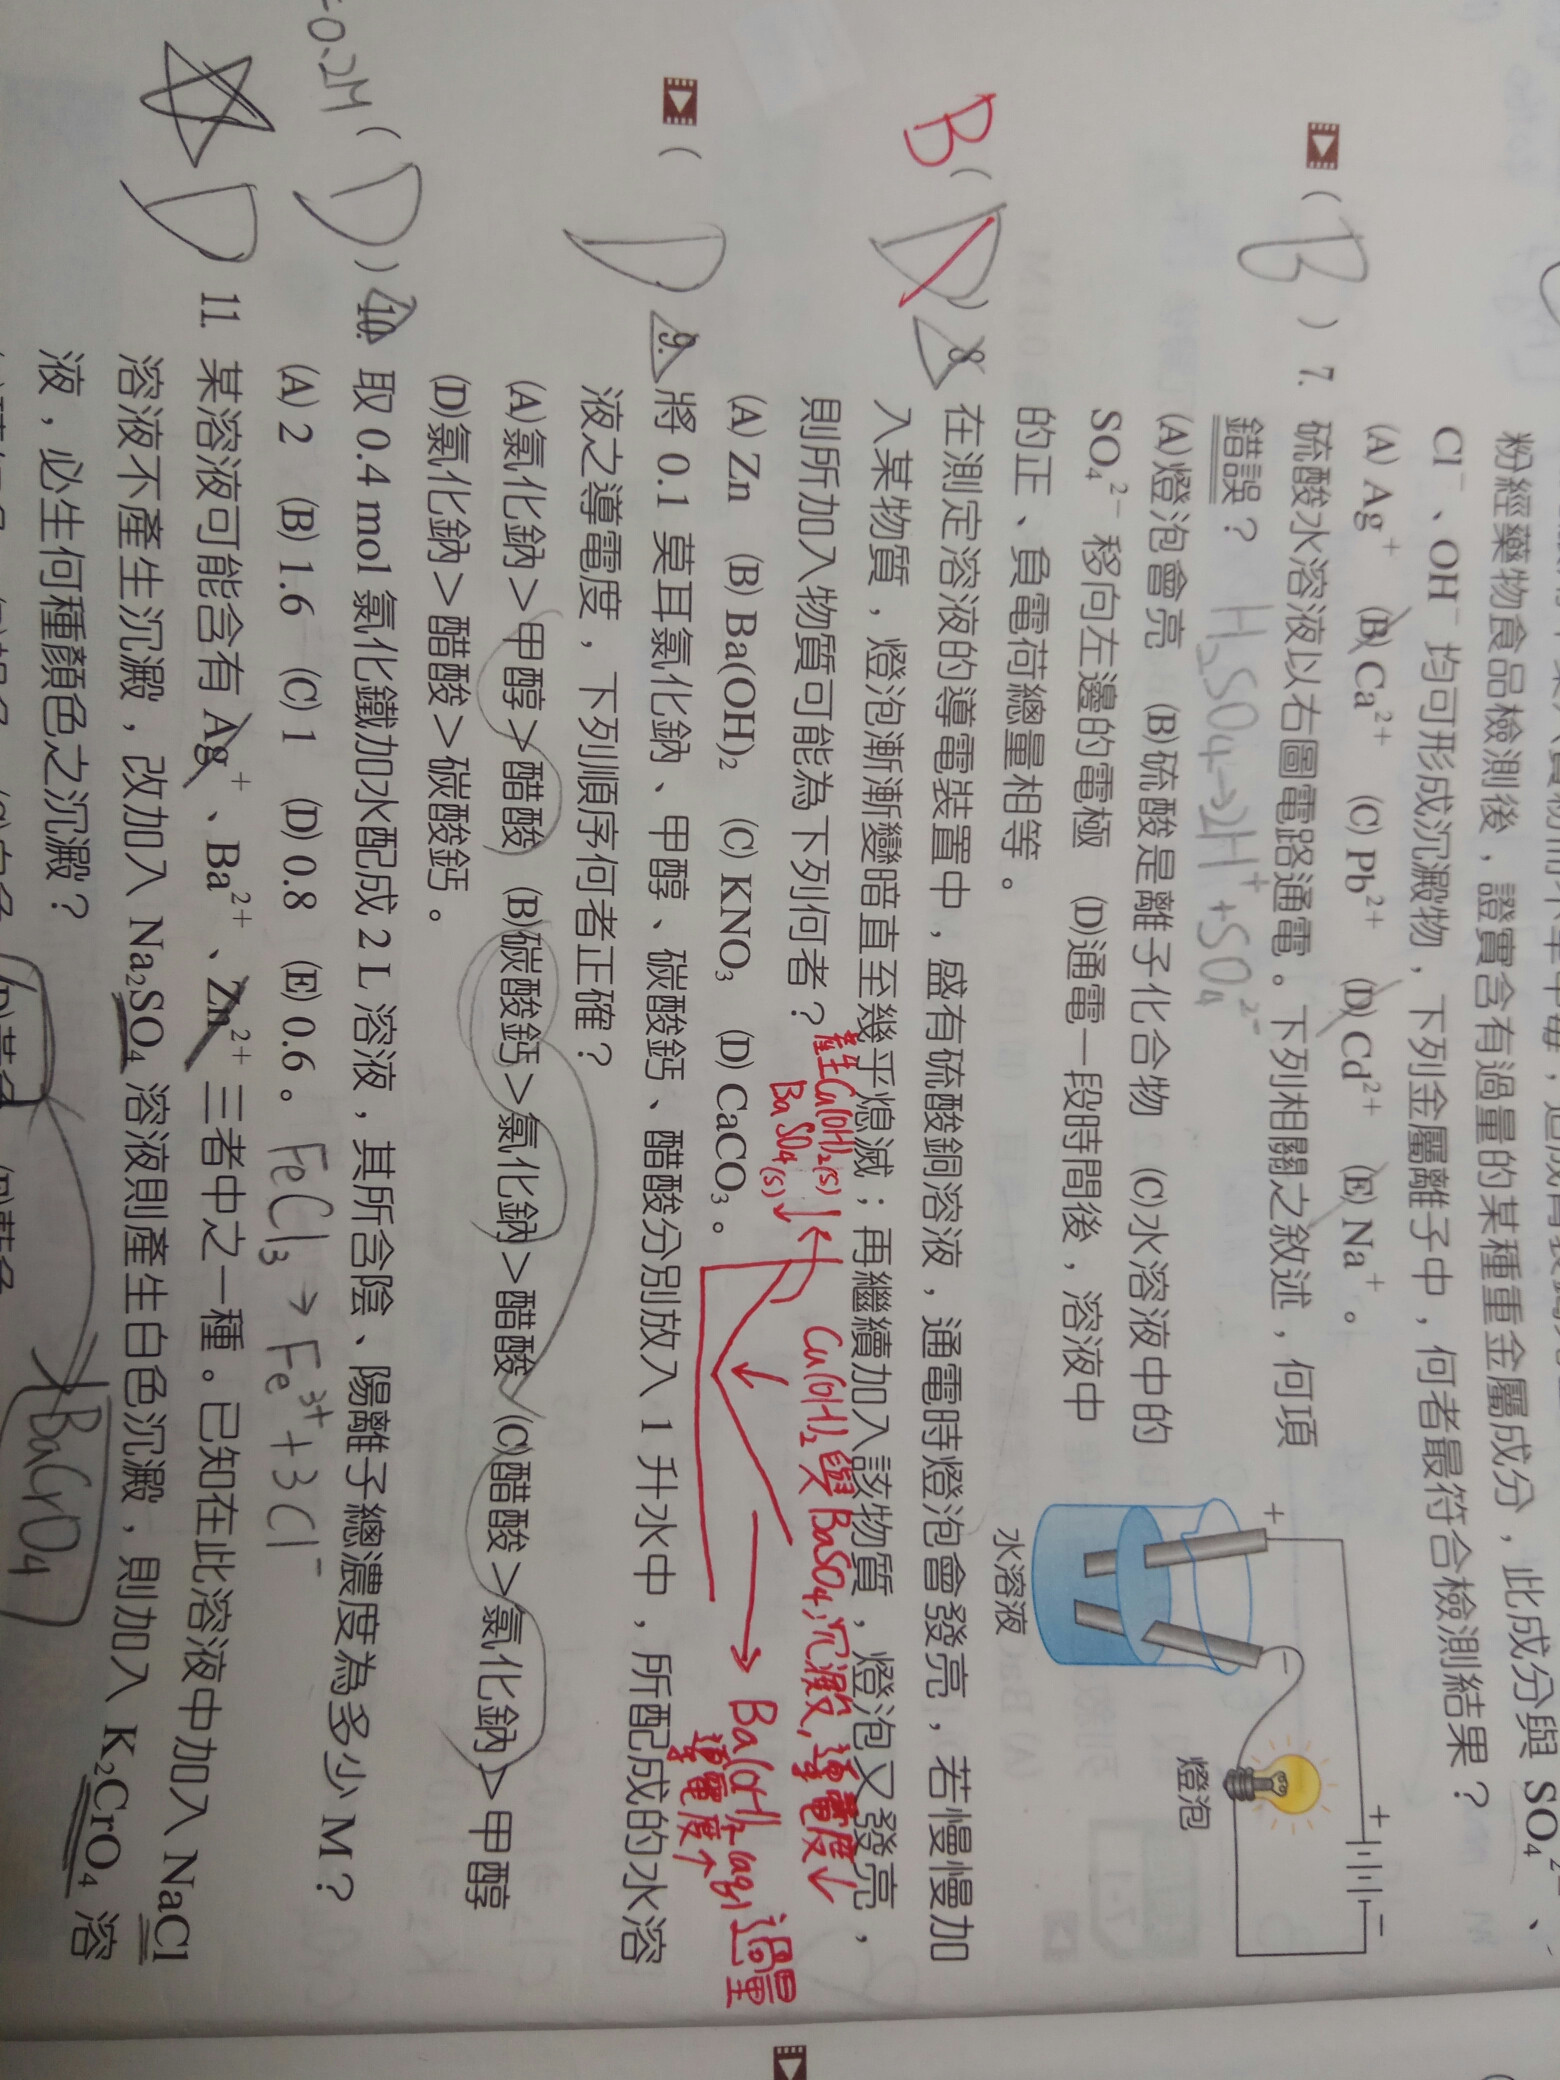 粉經藥物食品檢測後，證實含有過量的某種重金屬成分，此成分與 SO₄²⁻、
Cl⁻、OH⁻ 均可形成沉澱物，下列金屬離子中，何者最符合檢測結果？
(A) Ag⁺ (B) Ca²⁺ (C) Pb²⁺ (D) Cd²⁺ (E) Na⁺。
( B ) 7. 硫酸水溶液以右圖電路通電。下列相關之敘述，何項
錯誤？ H₂SO₄→2H⁺+SO₄²⁻
(A)燈泡會亮 (B)硫酸是離子化合物 (C)水溶液中的
SO₄²⁻ 移向左邊的電極 (D)通電一段時間後，溶液中
的正、負電荷總量相等。
+ −
+ −
燈泡
水溶液
B ( D ) 8. 在測定溶液的導電裝置中，盛有硫酸銅溶液，通電時燈泡會發亮，若慢慢加
入某物質，燈泡漸漸變暗直至幾乎熄滅；再繼續加入該物質，燈泡又發亮，
則所加入物質可能為下列何者？
(A) Zn (B) Ba(OH)₂ (C) KNO₃ (D) CaCO₃。
產生Cu(OH)₂(s)↓
BaSO₄(s)↓
Cu(OH)₂與BaSO₄沉澱，導電度↓
Ba(OH)₂(aq)過量
導電度↑
( D ) 9. 將 0.1 莫耳氯化鈉、甲醇、碳酸鈣、醋酸分別放入 1 升水中，所配成的水溶
液之導電度，下列順序何者正確？
(A)氯化鈉＞甲醇＞醋酸 (B)碳酸鈣＞氯化鈉＞醋酸 (C)醋酸＞氯化鈉＞甲醇
(D)氯化鈉＞醋酸＞碳酸鈣。
=0.2M
( D ) 10. 取 0.4 mol 氯化鐵加水配成 2 L 溶液，其所含陰、陽離子總濃度為多少 M？
(A) 2 (B) 1.6 (C) 1 (D) 0.8 (E) 0.6。 FeCl₃→Fe³⁺+3Cl⁻
D ) 11. 某溶液可能含有 Ag⁺、Ba²⁺、Zn²⁺ 三者中之一種。已知在此溶液中加入 NaCl
溶液不產生沉澱，改加入 Na₂SO₄ 溶液則產生白色沉澱，則加入 K₂CrO₄ 溶
液，必生何種顏色之沉澱？
BaCrO₄